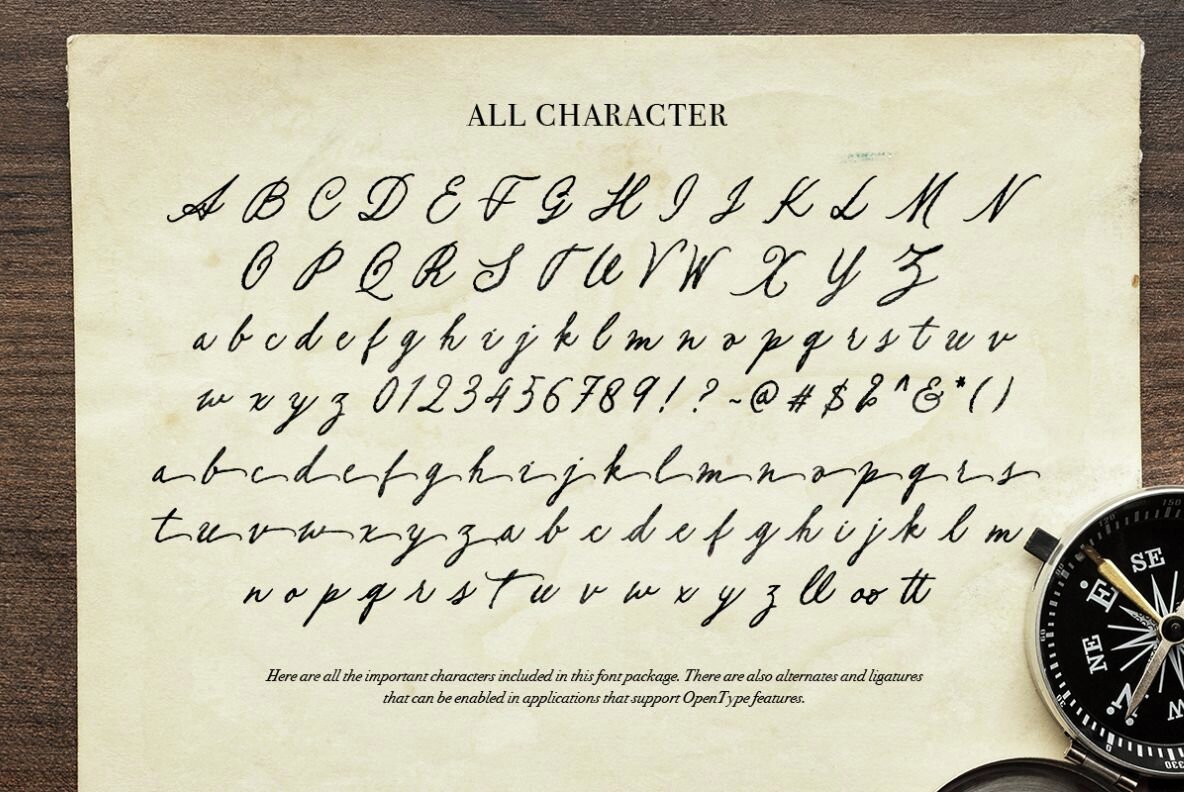 ALL CHARACTER
A B C D E F G H I J K L M N
O P Q R S T U V W X Y Z
a b c d e f g h i j k l m n o p q r s t u v
w x y z 0 1 2 3 4 5 6 7 8 9 ! ? ~ @ # $ % ^ & * ( )
a b c d e f g h i j k l m n o p q r s
t u v w x y z a b c d e f g h i j k l m
n o p q r s t u v w x y z ll oo tt
Here are all the important characters included in this font package. There are also alternates and ligatures
that can be enabled in applications that support OpenType features.
SE
E
NE
N
W
150
120
60
30
0
330